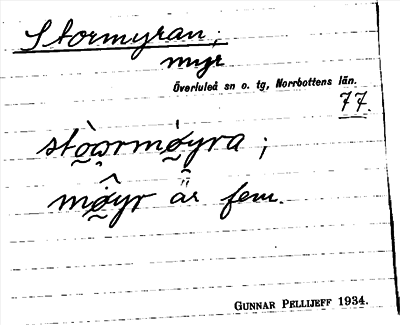 Stormyran;
myr
Överluleå sn o. tg, Norrbottens län.
77.
stò̰a̰rmø̰̀yra;
mø̰̂yr är fem.
GUNNAR PELLIJEFF 1934.